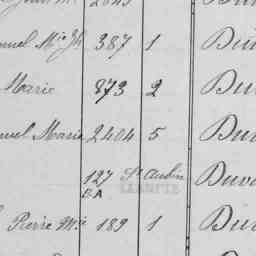 2643
nuel Mie Jh 387 1 Duv
Marie 873 2 Duv
nuel Marie 2404 5 Duv
127 St Aubin Duv
BA
Pierre Mie 189 1 Duv